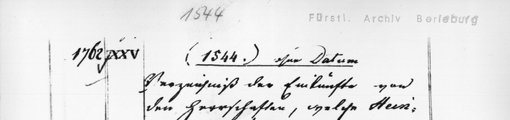 1544
Fürstl. Archiv Berleburg
1762 XXV (1544.) ohne Datum
Verzeichniß der Einkünfte von
den Herrschaften, welche Hein-